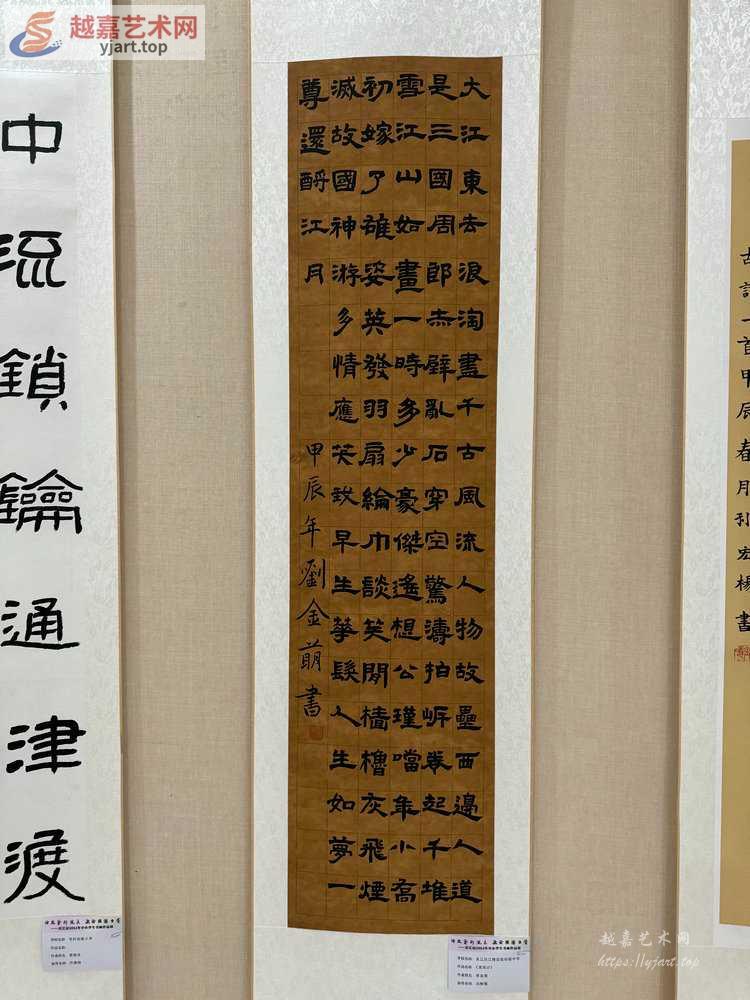 越嘉艺术网
yjart.top
古詩一首甲辰春月孙宏楊書
大江東去浪淘盡千古風流人物故壘西邊人道
是三國周郎赤壁亂石穿空驚濤拍岸卷起千堆
雪江山如畫一時多少豪傑遙想公瑾噹年小喬
初嫁了雄姿英發羽扇綸巾談笑間檣櫓灰飛煙
滅故國神游多情應笑我早生華髮人生如夢一
尊還酹江月
甲辰年劉金萌書
中流鎖鑰通津渡
越嘉艺术网
https://yjart.top